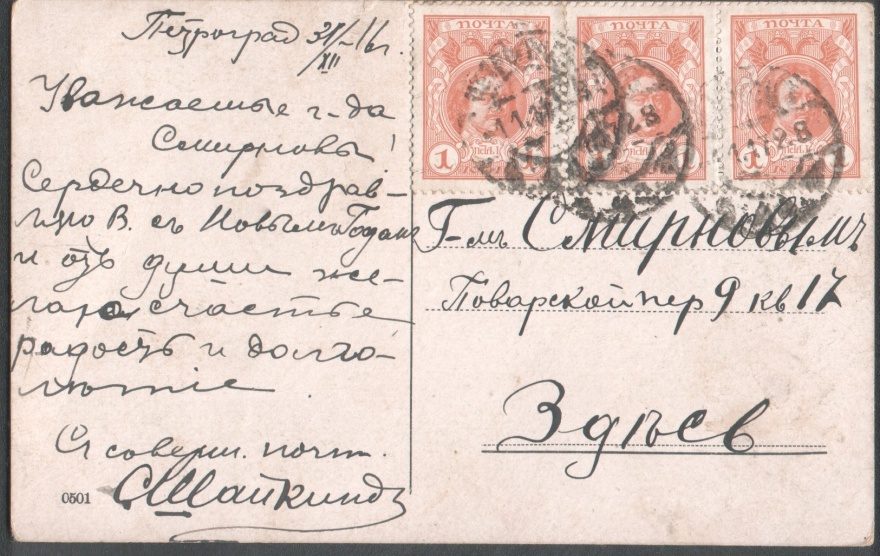 Петроград 31/XII-16 г.
Уважаемые г-да
Смирновы!
Сердечно поздрав-
ляю В. съ Новымъ Годомъ
и отъ души же-
лаю счастье
радость и долго-
лѣтіе
Съ соверш. почт.
СШайкиндъ
0501
ПОЧТА
ПОЧТА
ПОЧТА
1
1
1
1
Г-мъ Смирновымъ
Поварской пер 9 кв 17
Здѣсь